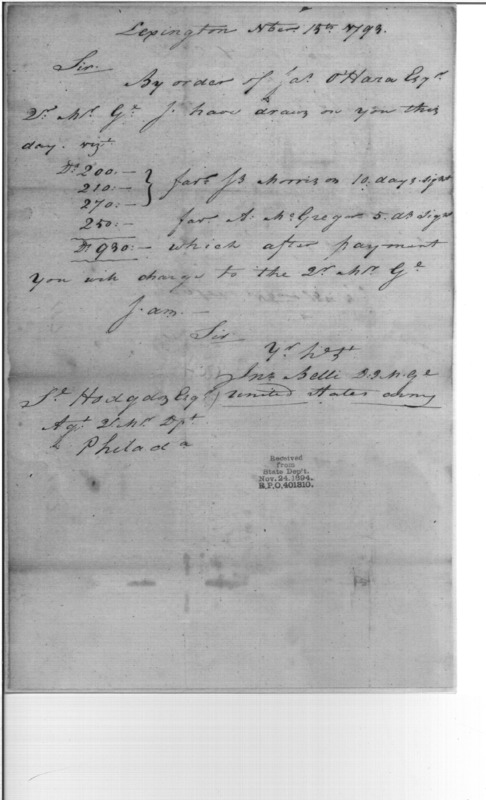 Lexington Nber 15th 1793.
Sir
By order of Jas. O'Hara Esqr.
Qr. Mr. Gl. I have drawn on you this
day. vizt
Ds 200.—
210.— } favr. Js Morrison 10 days sight
270.—
250.— favr A. McGregor 5. ds sight
Ds 930.— which after payment
you will charge to the Qr. Mr. Gl
I am —
Sir
Yr. hb st
Jno Belli D.Q.M.Gl
United States army
Sl Hodgdon Esqr
Agt Qr Mr Dpt
Philada
Received
from
State Dep't.
Nov. 24, 1894.
R.P.O. 401810.